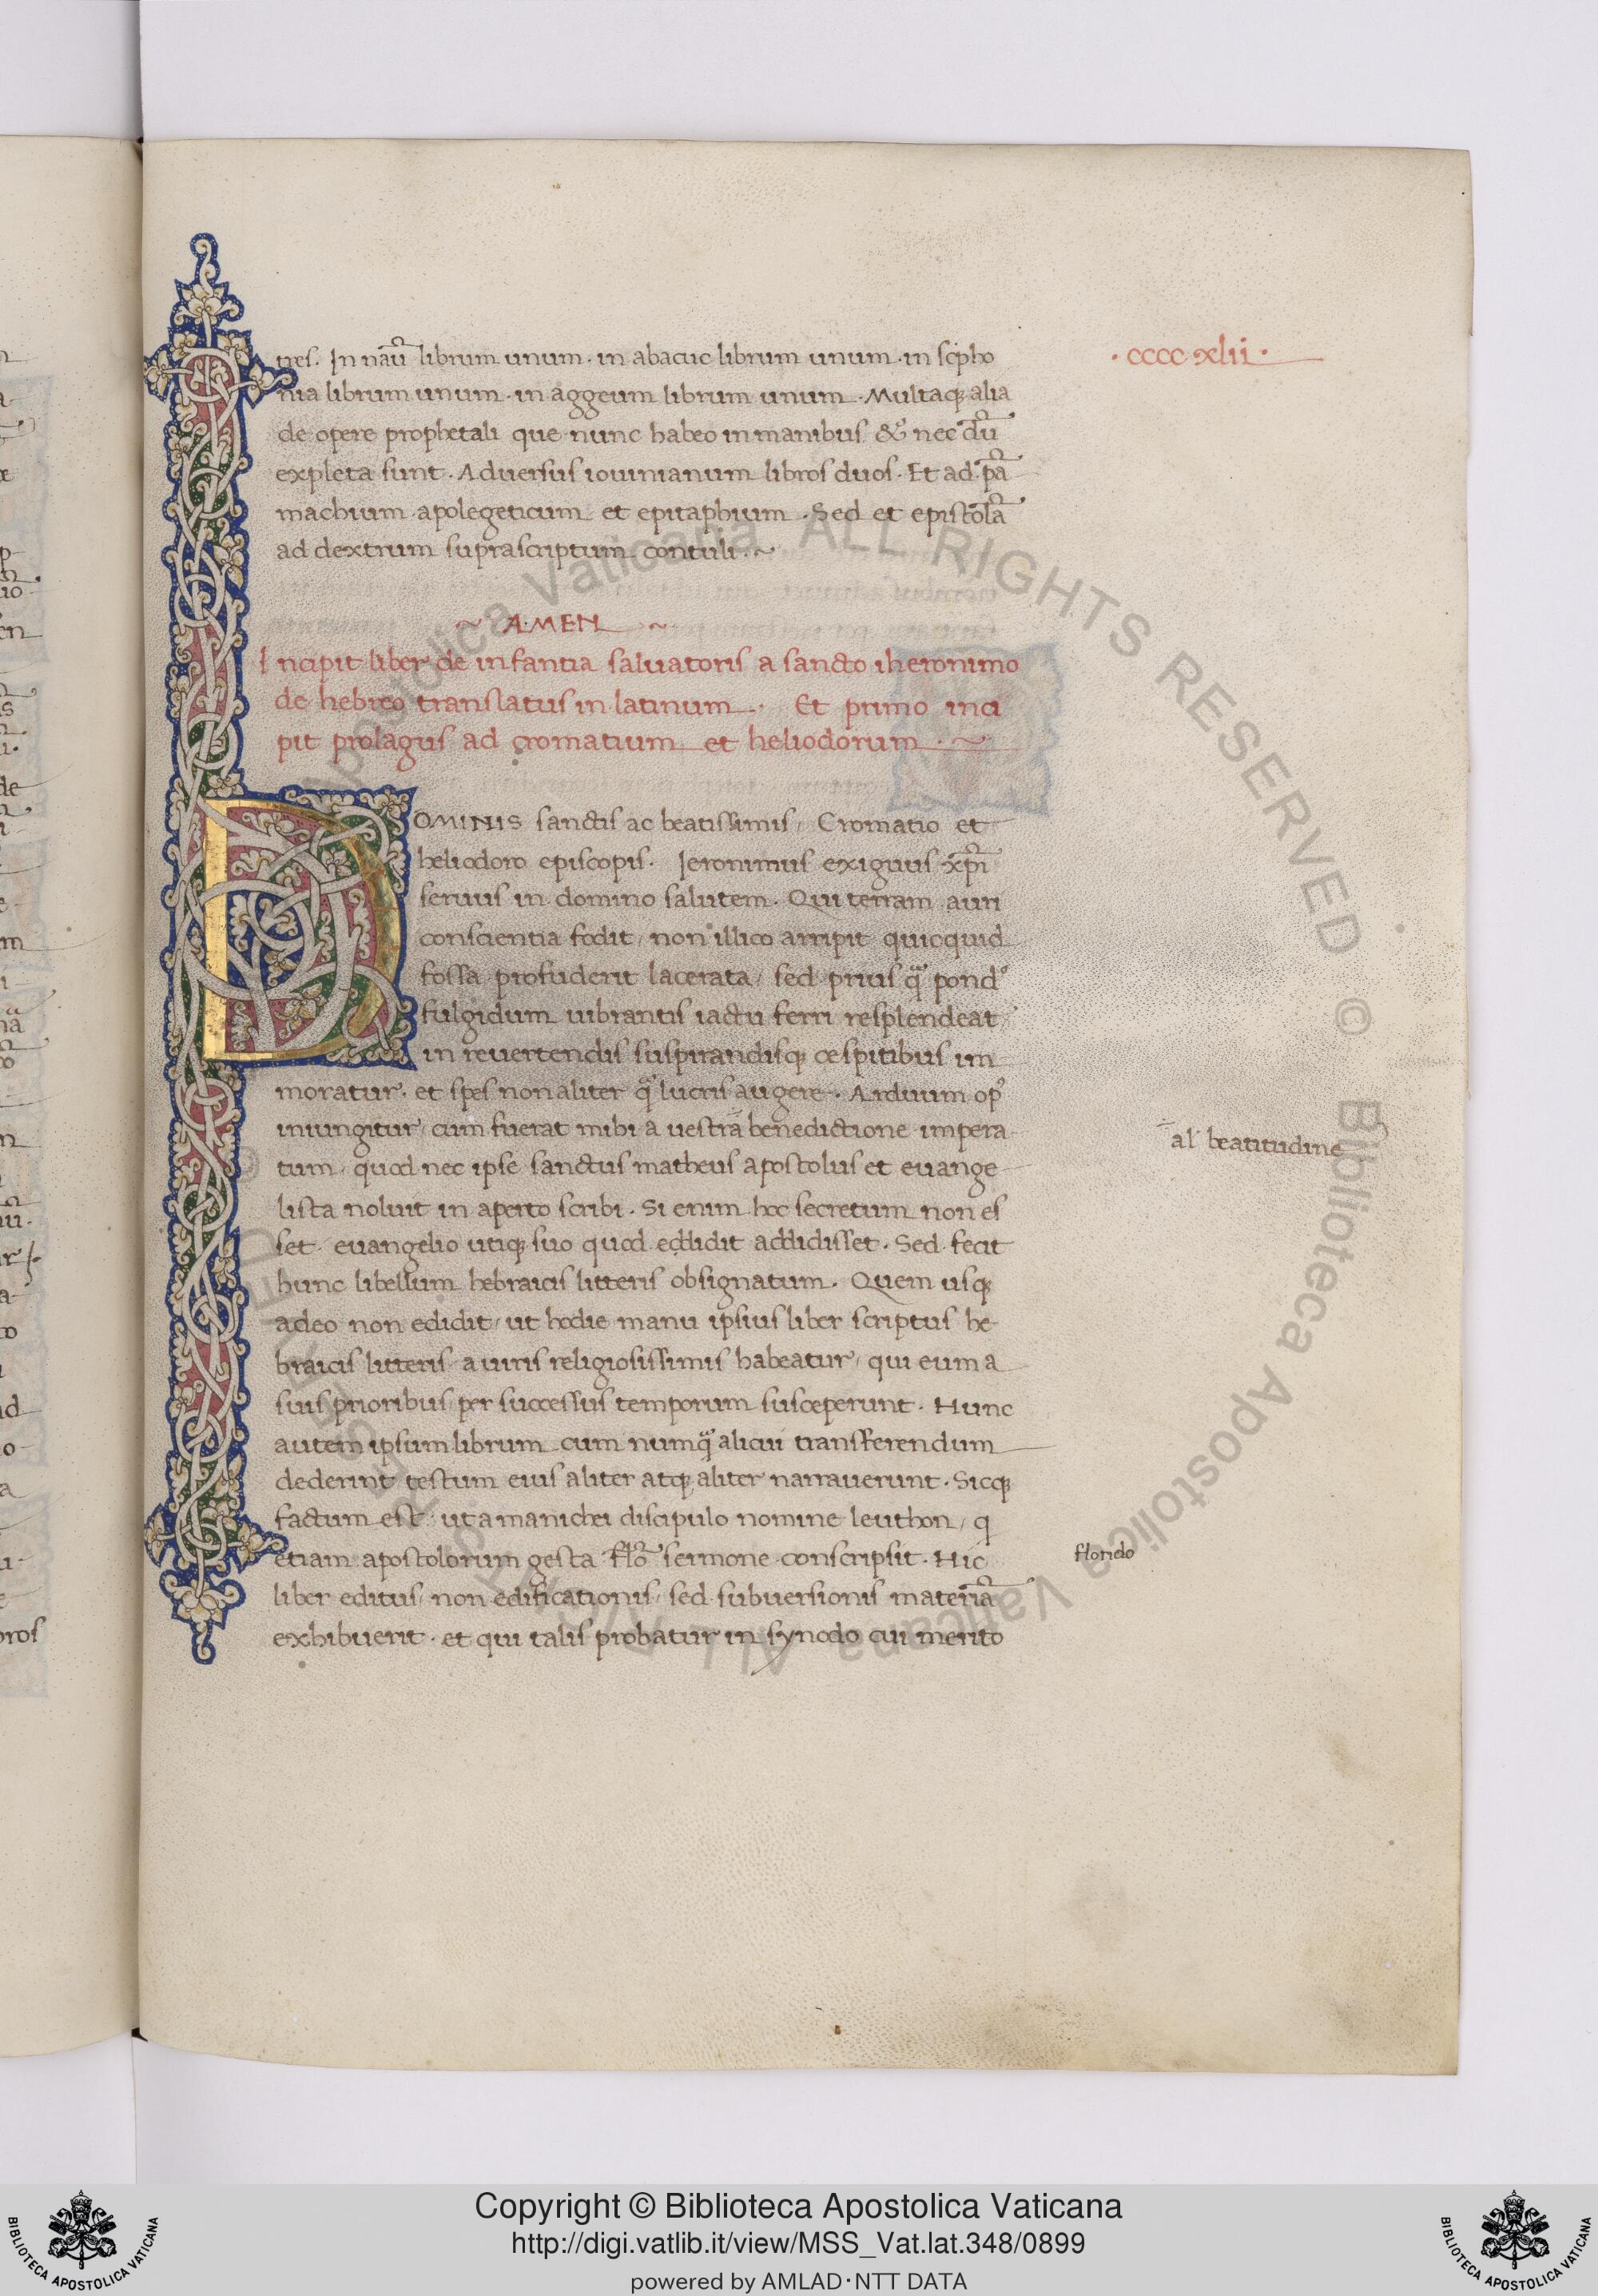 tres. In naũ librum unum · in abacuc librum unum · in sopho
nia librum unum · in aggeum librum unum · Multaq; alia
de opere prophetali que nunc habeo in manibus & nec dũ
expleta sunt · Aduersus iouinianum libros duos · Et ad pã
machium apolegeticum et epitaphium · Sed et epistolã
ad dextrum suprascriptum contuli · ~
· cccc xlii ·
~ AMEN ~
Incipit liber de infantia saluatoris a sancto iheronimo
de hebreo translatus in latinum · Et primo inci
pit prolagus ad cromatium et heliodorum · ~
DOMINIS sanctis ac beatissimis / Cromatio et
heliodoro episcopis · Jeronimus exiguus xp̃i
seruus in domino salutem · Qui terram auri
conscientia fodit / non illico arripit quicquid
fossa profuderit lacerata / sed prius q̃ pondꝰ
fulgidum uibrantis iactu ferri resplendeat
in reuertendis suspirandisq; cespitibus im
moratur · et spes non aliter q̃ lucris augere · Arduum opꝰ
iniungitur / cum fuerat mihi a uestra benedictione impera
tum / quod nec ipse sanctus matheus apostolus et euange
lista noluit in aperto scribi · Si enim hoc secretum non es
set / euangelio utiq; suo quod eddidit addidisset · Sed fecit
hunc libellum hebraicis litteris obsignatum · Quem usq;
adeo non edidit / ut hodie manu ipsius liber scriptus he-
braicis litteris a uiris religiosissimis habeatur / qui eum a
suis prioribus per successus temporum susceperunt · Hunc
autem ipsum librum cum numq̃ alicui transferendum
dederint testum eius aliter atq; aliter narrauerunt · Sicq;
factum est / ut a manichei discipulo nomine leuthon / q
etiam apostolorum gesta flõ sermone conscripsit · Hic
liber editus / non edificationis / sed subuersionis materiã
exhibuerit · et qui talis probatur in synodo cui merito
al beatitudine
florido
Biblioteca Apostolica Vaticana ALL RIGHTS RESERVED ©
Copyright © Biblioteca Apostolica Vaticana
http://digi.vatlib.it/view/MSS_Vat.lat.348/0899
powered by AMLAD·NTT DATA
BIBLIOTECA APOSTOLICA VATICANA
BIBLIOTECA APOSTOLICA VATICANA